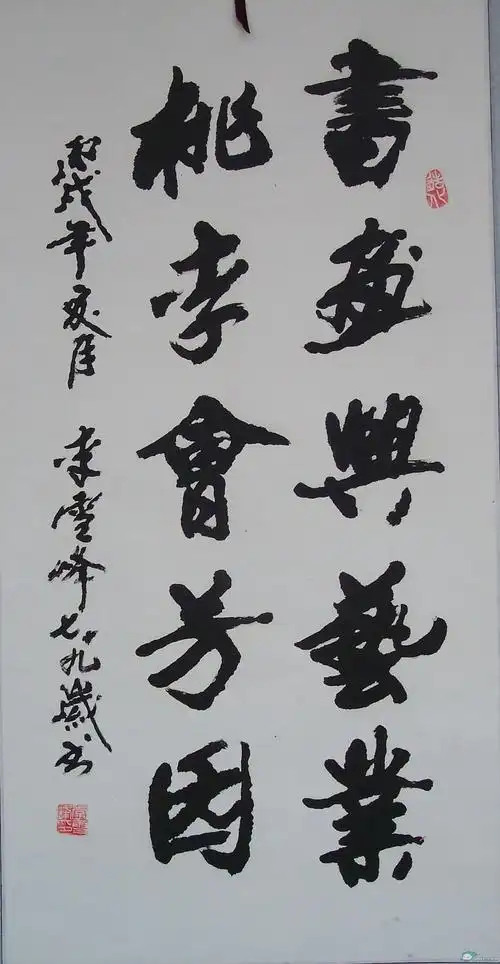 書畫興藝業
桃李會芳園
丙戌年夏月 李雪峰七十九歲書